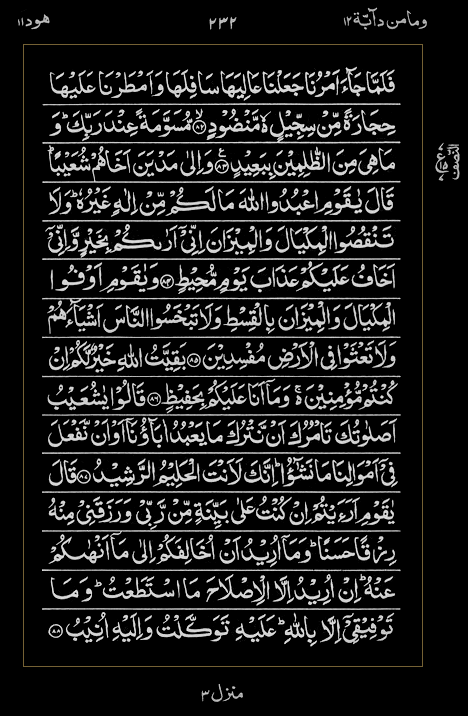 وما من دآبّة ١٢ ٢٣٢ هود ١١
فَلَمَّا جَآءَ اَمْرُنَا جَعَلْنَا عَالِيَهَا سَافِلَهَا وَاَمْطَرْنَا عَلَيْهَا
حِجَارَةً مِّنْ سِجِّيْلٍ ۙ۬ مَّنْضُوْدٍ ۙ﴿٨٢﴾ مُّسَوَّمَةً عِنْدَ رَبِّكَ ؕ وَ
مَا هِىَ مِنَ الظّٰلِمِيْنَ بِبَعِيْدٍ ﴿٨٣﴾ وَاِلٰى مَدْيَنَ اَخَاهُمْ شُعَيْبًا ؕ
النّصف
قَالَ يٰقَوْمِ اعْبُدُوا اللّٰهَ مَا لَكُمْ مِّنْ اِلٰهٍ غَيْرُهٗ ؕ وَلَا
تَنْقُصُوا الْمِكْيَالَ وَالْمِيْزَانَ اِنِّىْۤ اَرٰٮكُمْ بِخَيْرٍ وَّاِنِّىْۤ
اَخَافُ عَلَيْكُمْ عَذَابَ يَوْمٍ مُّحِيْطٍ ﴿٨٤﴾ وَيٰقَوْمِ اَوْفُوا
الْمِكْيَالَ وَالْمِيْزَانَ بِالْقِسْطِ وَلَا تَبْخَسُوا النَّاسَ اَشْيَآءَهُمْ
وَلَا تَعْثَوْا فِى الْاَرْضِ مُفْسِدِيْنَ ﴿٨٥﴾ بَقِيَّتُ اللّٰهِ خَيْرٌ لَّكُمْ اِنْ
كُنْتُمْ مُّؤْمِنِيْنَ ۚ۬ وَمَاۤ اَنَا عَلَيْكُمْ بِحَفِيْظٍ ﴿٨٦﴾ قَالُوْا يٰشُعَيْبُ
اَصَلٰوتُكَ تَاْمُرُكَ اَنْ نَّتْرُكَ مَا يَعْبُدُ اٰبَآؤُنَاۤ اَوْ اَنْ نَّفْعَلَ
فِىْۤ اَمْوَالِنَا مَا نَشٰٓؤُا ؕ اِنَّكَ لَاَنْتَ الْحَلِيْمُ الرَّشِيْدُ ﴿٨٧﴾ قَالَ
يٰقَوْمِ اَرَءَيْتُمْ اِنْ كُنْتُ عَلٰى بَيِّنَةٍ مِّنْ رَّبِّىْ وَرَزَقَنِىْ مِنْهُ
رِزْقًا حَسَنًا ؕ وَمَاۤ اُرِيْدُ اَنْ اُخَالِفَكُمْ اِلٰى مَاۤ اَنْهٰٮكُمْ
عَنْهُ ؕ اِنْ اُرِيْدُ اِلَّا الْاِصْلَاحَ مَا اسْتَطَعْتُ ؕ وَمَا
تَوْفِيْقِىْۤ اِلَّا بِاللّٰهِ ؕ عَلَيْهِ تَوَكَّلْتُ وَاِلَيْهِ اُنِيْبُ ﴿٨٨﴾
منزل ٣